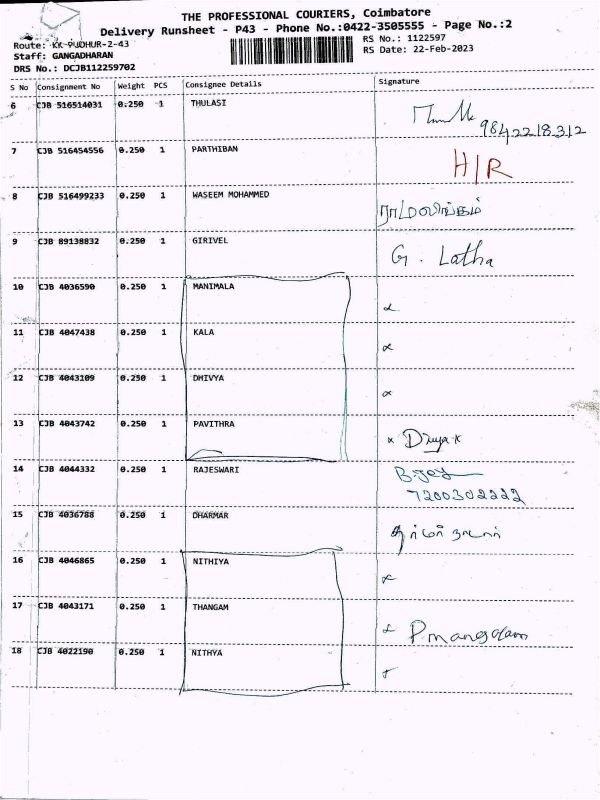 THE PROFESSIONAL COURIERS, Coimbatore
Delivery Runsheet - P43 - Phone No.:0422-3505555 - Page No.:2
Route: KK-PUDHUR-2-43
RS No.: 1122597
Staff: GANGADHARAN
RS Date: 22-Feb-2023
DRS No.: DCJB112259702
S No Consignment No Weight PCS Consignee Details Signature
6 CJB 516514031 0.250 1 THULASI
9842218312
7 CJB 516454556 0.250 1 PARTHIBAN H/R
8 CJB 516499233 0.250 1 WASEEM MOHAMMED ராமலிங்கம்
9 CJB 89138832 0.250 1 GIRIVEL G. Latha
10 CJB 4036590 0.250 1 MANIMALA
11 CJB 4047438 0.250 1 KALA
12 CJB 4043109 0.250 1 DHIVYA
13 CJB 4043742 0.250 1 PAVITHRA
14 CJB 4044332 0.250 1 RAJESWARI B.Joy
7200302222
15 CJB 4036788 0.250 1 DHARMAR
16 CJB 4046865 0.250 1 NITHIYA
17 CJB 4043171 0.250 1 THANGAM P.mangalam
18 CJB 4022190 0.250 1 NITHYA